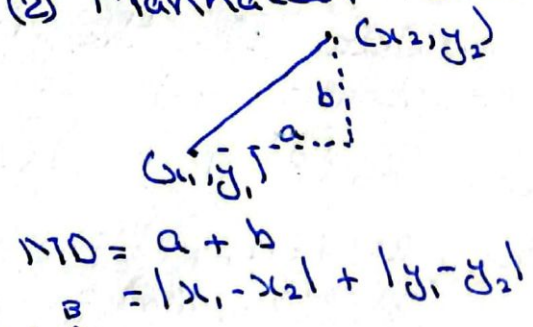 (2)
(x₂, y₂)
b
a
(x₁, y₁)
MD = a + b
= |x₁ - x₂| + |y₁ - y₂|
B